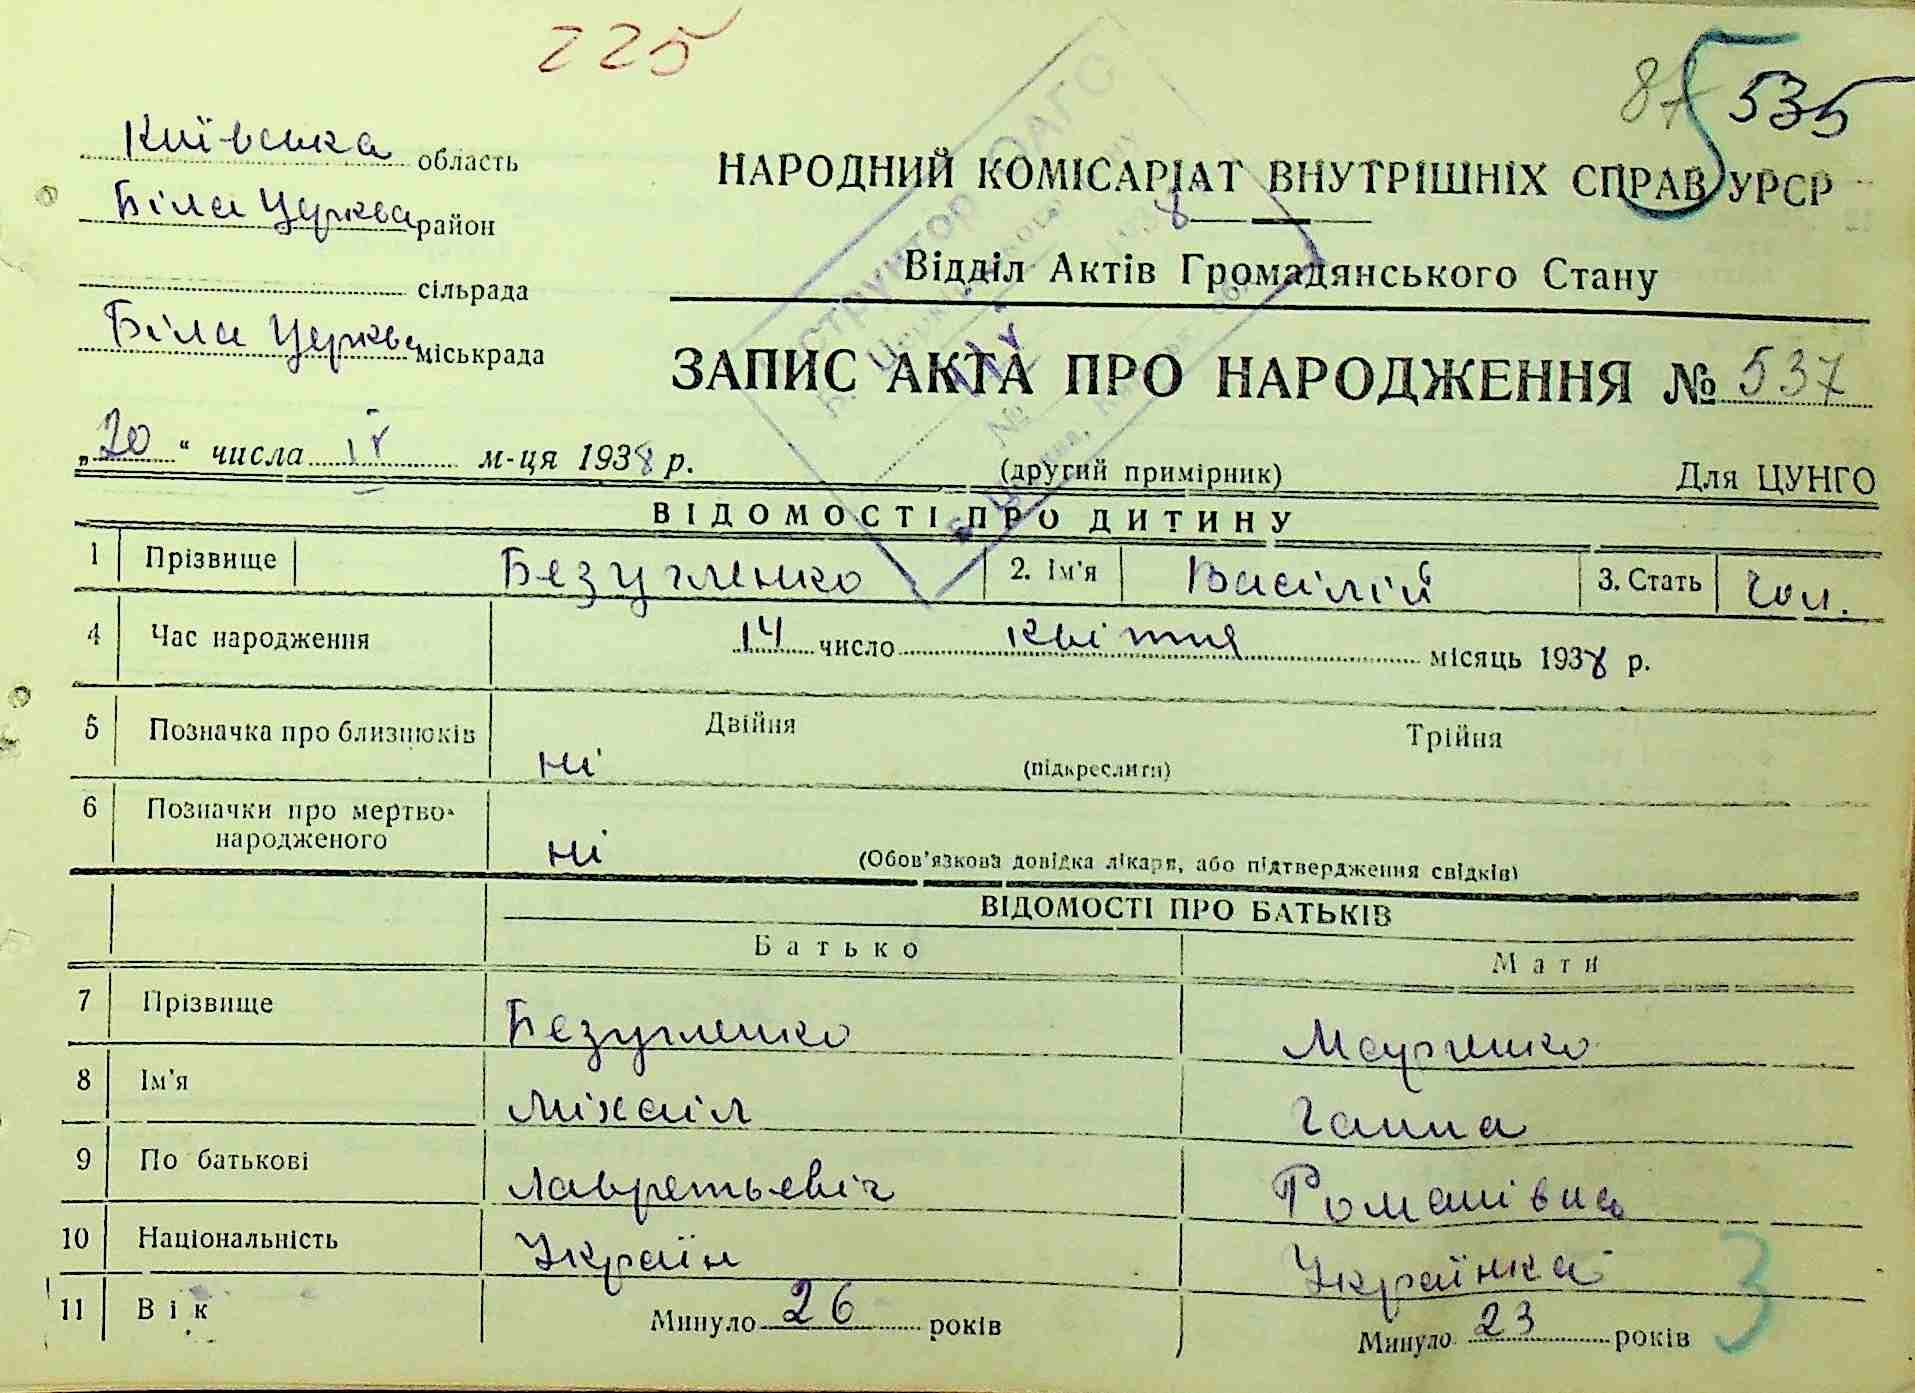 225
87 535
Київська область
Біла Церква район
сільрада
Біла Церква міськрада
НАРОДНИЙ КОМІСАРІАТ ВНУТРІШНІХ СПРАВ УРСР
Відділ Актів Громадянського Стану
ЗАПИС АКТА ПРО НАРОДЖЕННЯ № 537
„20“ числа IV м-ця 1938 р.
(другий примірник) Для ЦУНГО
ВІДОМОСТІ ПРО ДИТИНУ
1 Прізвище Безугленко 2. Ім'я Васілій 3. Стать чол.
4 Час народження 14 число квітня місяць 1938 р.
5 Позначка про близнюків Двійня Трійня
ні (підкреслити)
6 Позначки про мертво-
народженого
ні (Обов'язкова довідка лікаря, або підтвердження свідків)
ВІДОМОСТІ ПРО БАТЬКІВ
Батько Мати
7 Прізвище Безугленко Марченко
8 Ім'я Міхаіл Ганна
9 По батькові Лавретьевіч Романівна
10 Національність Україн Українка
11 Вік Минуло 26 років Минуло 23 років
3